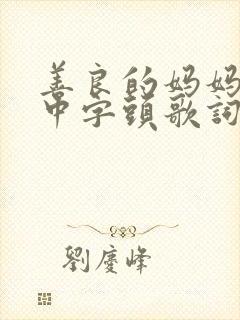 善良的妈妈
中字頭歌詞
劉慶峰